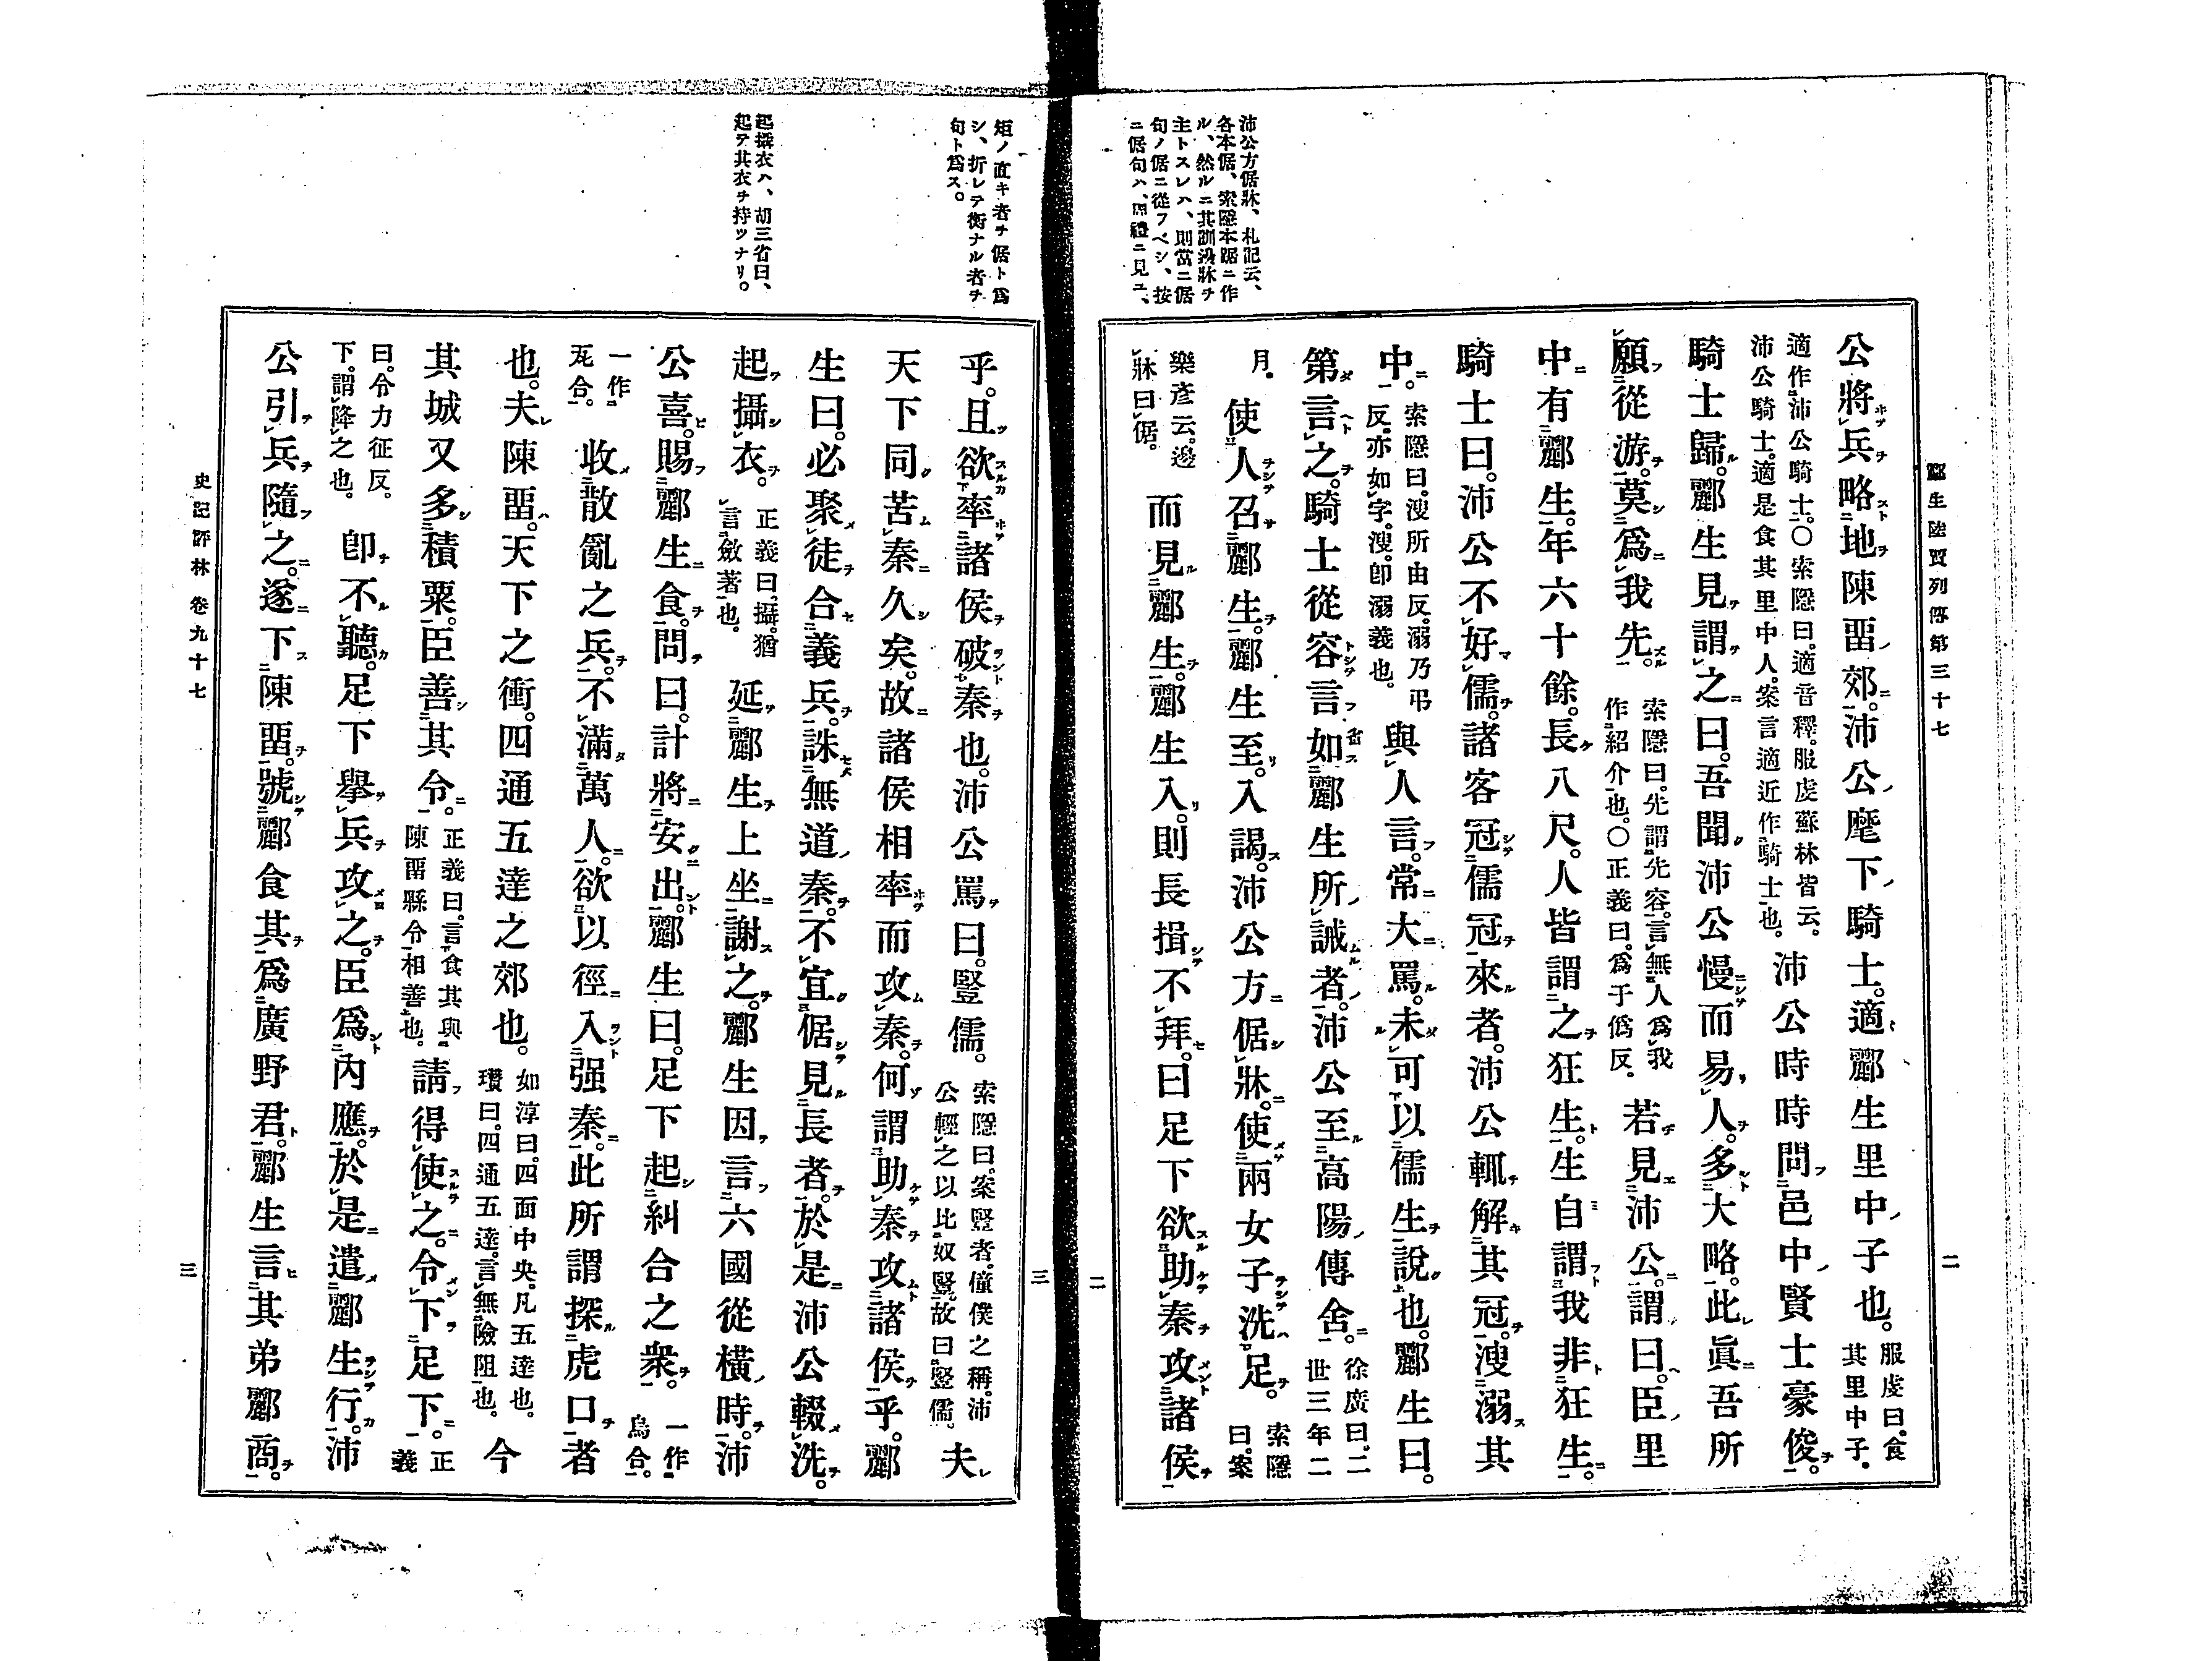 沛公方倨牀、札記云、
各本倨、索隱本踞ニ作
ル、然ルニ其訓邊牀チ
主トスレハ、則當ニ倨
句ノ倨ニ從フベシ、按
ニ倨句ハ、周禮ニ見ユ、
酈生陸賈列傳第三十七
二
公將兵略地陳畱郊。沛公麾下騎士。適酈生里中子也。服虔曰。食
其里中子。
適作沛公騎士。〇索隱曰。適音釋。服虔蘇林皆云。
沛公騎士。適是食其里中人。案言適近作騎士也。沛公時時問邑中賢士豪俊。
騎士歸。酈生見謂之曰。吾聞沛公慢而易人。多大略。此眞吾所
願從游。莫爲我先。索隱曰。先謂先容。言無人爲我
作紹介也。〇正義曰。爲于僞反。若見沛公。謂曰。臣里
中有酈生。年六十餘。長八尺。人皆謂之狂生。生自謂我非狂生。
騎士曰。沛公不好儒。諸客冠儒冠來者。沛公輒解其冠。溲溺其
中。索隱曰。溲所由反。溺乃弔
反。亦如字。溲。卽溺義也。與人言。常大罵。未可以儒生說也。酈生曰。
第言之。騎士從容言如酈生所誡者。沛公至高陽傳舍。徐廣曰。二
世三年二
月。使人召酈生。酈生至。入謁。沛公方倨牀。使兩女子洗足。索隱
曰。案
樂彥云。邊
牀曰倨。而見酈生。酈生入。則長揖不拜。曰足下欲助秦攻諸侯
二
矩ノ直キ者チ倨ト爲
シ、折レテ衡ナル者チ
句ト爲ス。
起攝衣ハ、胡三省曰、
起テ其衣チ持ツナリ。
三
乎。且欲率諸侯破秦也。沛公罵曰。豎儒。索隱曰。案豎者。僮僕之稱。沛
公輕之以比奴豎。故曰豎儒。夫
天下同苦秦久矣。故諸侯相率而攻秦。何謂助秦攻諸侯乎。酈
生曰。必聚徒合義兵。誅無道秦。不宜倨見長者。於是沛公輟洗。
起攝衣。正義曰。攝。猶
言斂著也。延酈生上坐謝之。酈生因言六國從橫時。沛
公喜。賜酈生食。問曰。計將安出。酈生曰。足下起糾合之衆。一作
烏合。
一作
瓦合。收散亂之兵。不滿萬人。欲以徑入强秦。此所謂探虎口者
也。夫陳畱。天下之衝。四通五達之郊也。如淳曰。四面中央。凡五達也。
瓚曰。四通五達。言無險阻也。今
其城又多積粟。臣善其令。正義曰。言食其與
陳畱縣令相善也。請得使之。令下足下。正
義
曰。令力征反。
下。謂降之也。卽不聽。足下擧兵攻之。臣爲內應。於是遣酈生行。沛
公引兵隨之。遂下陳畱。號酈食其爲廣野君。酈生言其弟酈商。
史記評林 卷九十七
三